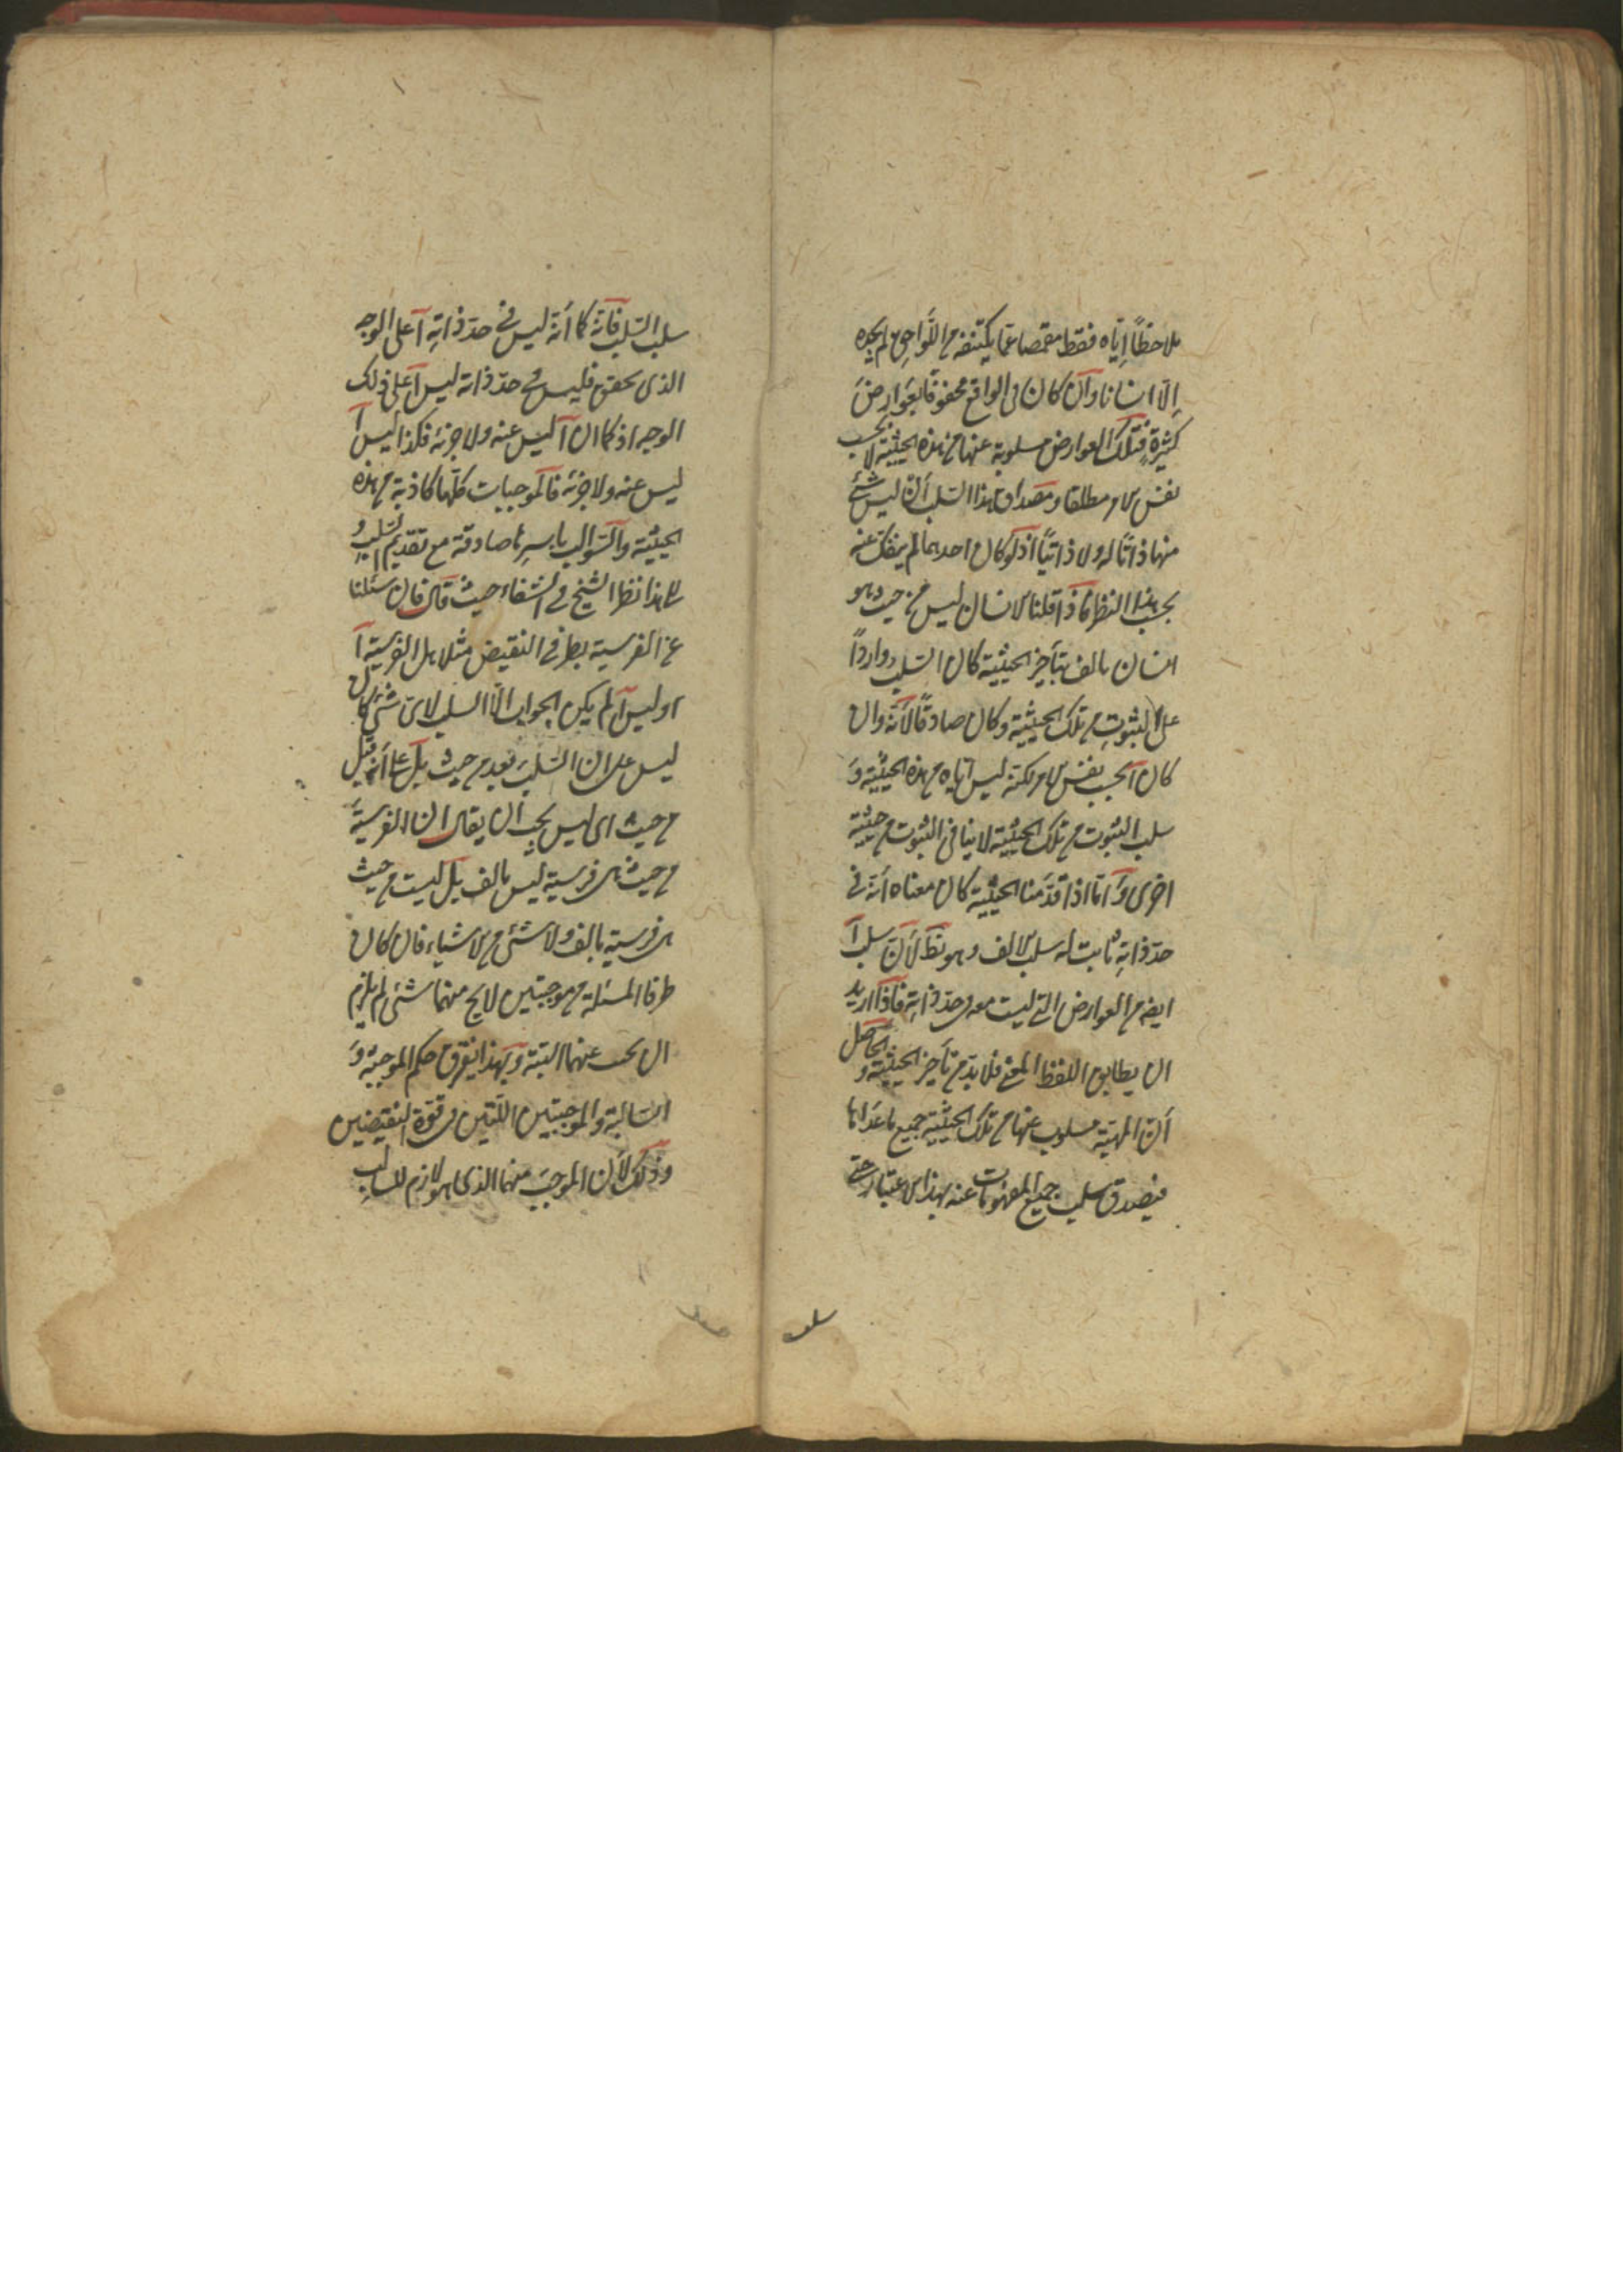 ملاحظًا إيّاه فقط مقمصا عمّا يكتنفه من اللّواحق لم يجده
إلّا انسانا وآن كان فى الواقع محفوفًا بعَوارِضَ
كثيرةٍ فتلك العوارض مسلوبة عنها من هذه الحيثية لا بحسب
نفس الامر مطلقا ومصداق هذا السّلب أنّ ليس شئ
منها ذاتًا له ولا ذاتيّاً اذ لو كان احدهما لم ينفك عنه
بحسب هذا النظر فاذا قلنا الانسان ليس من حيث هو
انسان بالف بتأخير الحيثية كان السّلب واردًا
على الثبوتِ من تلك الحيثية وكان صادقًا لأنّه وان
كان آ بحسب نفس الامر لكنّه ليس ايّاه من هذه الحيثية وَ
سلب الثبوت من تلك الحيثية لا ينافى الثبوت من حيثية
اخرى وَامّا اذا قدّمنا الحيثية كان معناه أنّه فى
حدّ ذاتِه ثابت له سلب الالف وهو بَطَ لأنّ سلب آ
ايضا من العوارض التى ليست معه فى حدّ ذاتِه فاذا اريد
ان يطابق اللفظ المعنى فلا بدّ من تأخير الحيثية و الحاصل
أنّ المهيّة مسلوب عنها من تلك الحيثية جميع ما عَداها
فيصدق سلب جميع المفهومات عنه بهذا الاعتبار حتى
سلب
سلب السّلب فانّه كما أنّه ليس فى حدّ ذاتِه آ على الوجه
الذى تحقق فليس فى حدّ ذاته ليس آ على ذلك
الوجه اذ كما ان آ ليس عينه ولا جزئه فكذا ليس آ
ليس عينه ولا جزئه فالموجبات كلّها كاذبة من هذه
الحيثيّة والسّوالب باسرِها صادقة مع تقديم السّلب و
الى هذا نظر الشيخ فى الشفاء حيث قال فان سئلنا
عن الفرسية بطرفى النقيض مثلا هل الفرسية آ
او ليس آ لم يكن الجواب الّا السلب لاىّ شئ كان
ليس على ان السّلب بعد من حيث بل على أنّه قبل
من حيث اى ليس يجب ان يقال ان الفرسيّةَ
من حيث هى فرسية ليس بالف بل ليست من حيث
هى فرسية بالف ولا شئ من الاشياء فان كان
طرفا المسئلة من موجبتين لا يخ منهما شئ لم يلزم
ان نجيب عنهما البتة وبهذا يفرق حكم الموجبة وَ
السّالبة والموجبتين اللّتين فى قوّة النقيضين
وذلك لأن الموجبَ منهما الذى هو لازم للسّالب